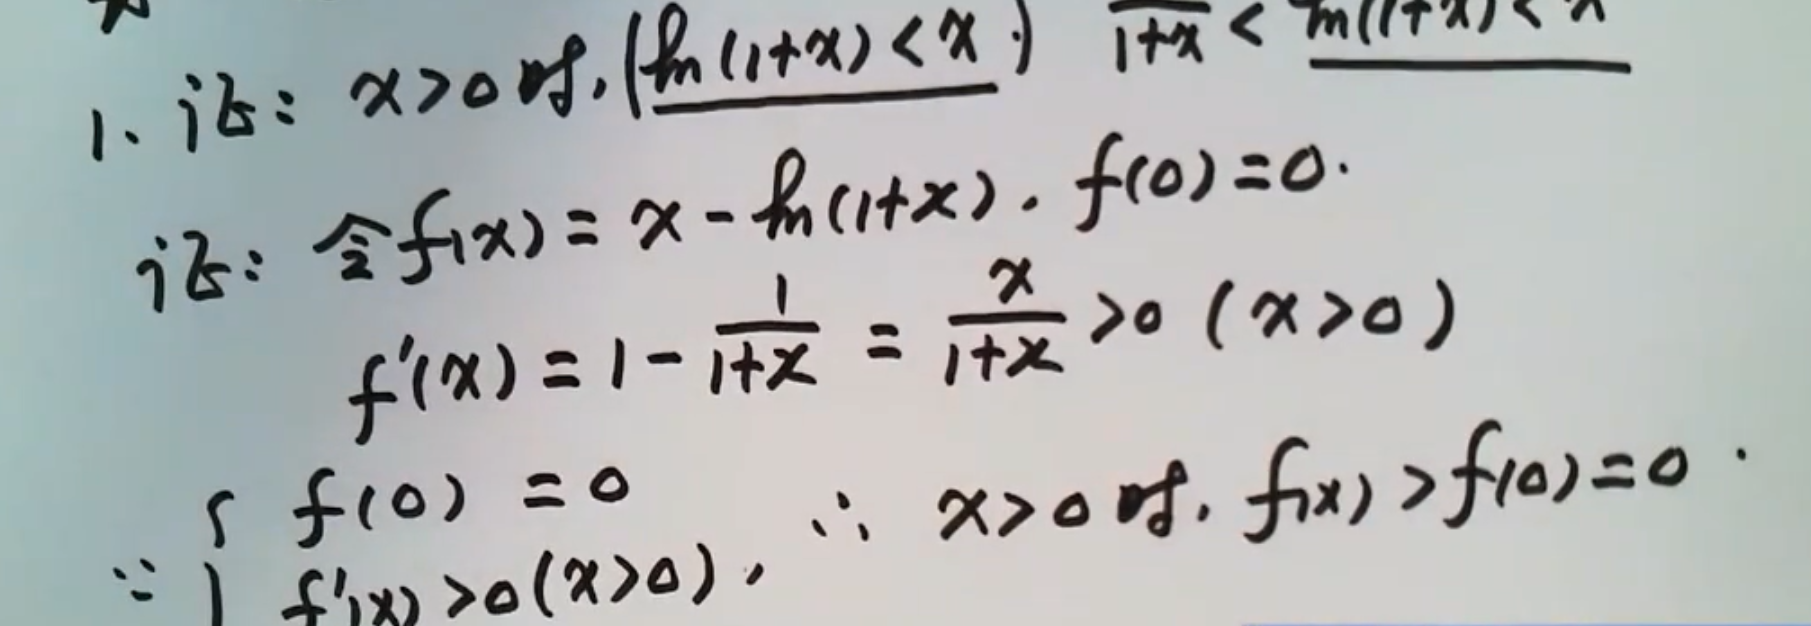 1. 证: x>0时, (ln(1+x)<x.) /(1+x) < ln(1+x) < x
证: 令f(x) = x - ln(1+x). f(0)=0.
f'(x) = 1 - 1/(1+x) = x/(1+x) >0 (x>0)
∵ { f(0) = 0
f'(x) >0 (x>0), ∴ x>0时, f(x) > f(0) = 0.